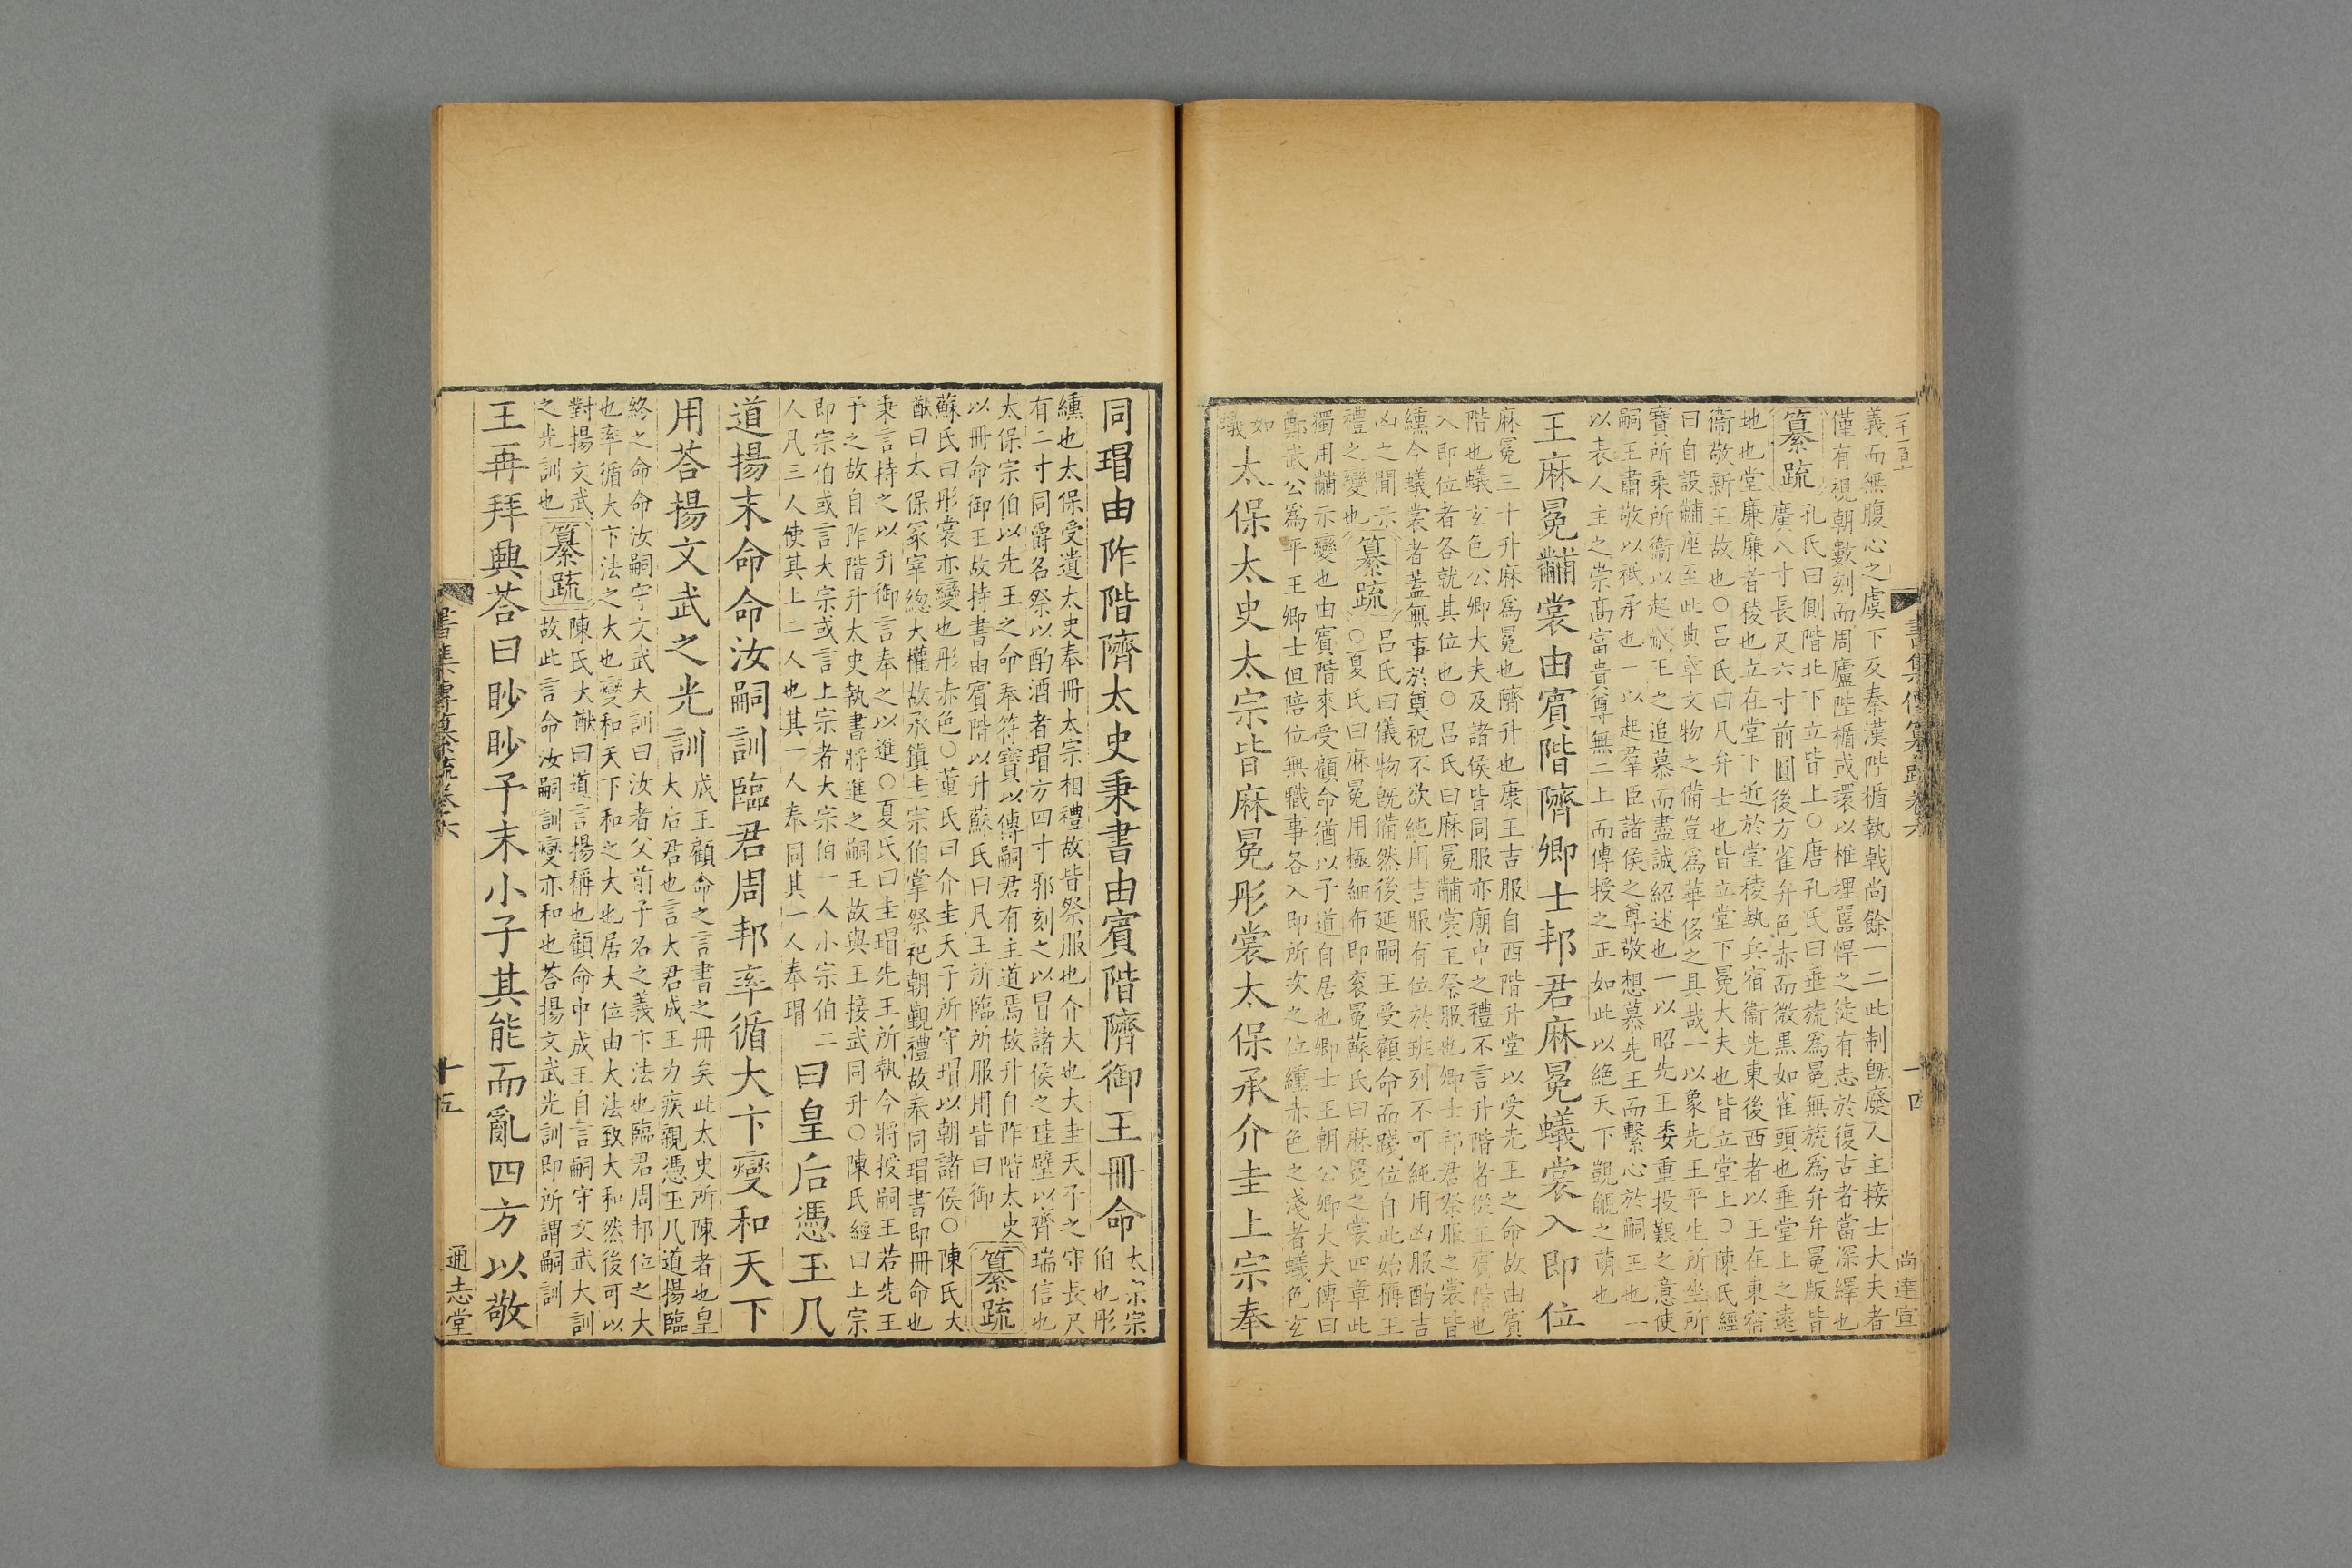 義而無腹心之虞下及秦漢陛楯執戟尚餘一二此制旣廢人主接士大夫者
僅有視朝數刻而周廬陛楯或環以椎埋嚚悍之徒有志於復古者當深繹也
纂疏
孔氏曰側階北下立階上○唐孔氏曰垂旒爲冕無旒爲弁弁冕版皆
廣八寸長尺六寸前圓後方雀弁色赤而微黒如雀頭也垂堂上之遠
地也堂廉廉者稜也立在堂下近於堂稜執兵宿衞先東後西者以王在東宿
衞敬新王故也○呂氏曰凡弁士也皆立堂下冕大夫也皆立堂上○陳氏經
曰自設黼座至此典章文物之備豈爲華侈之具哉一以象先王平生所坐所
寶所乗所衞以起嗣王之追慕而盡誠紹述也一以昭先王委重投艱之意使
嗣王肅敬以祗承也一以起羣臣諸侯之尊敬想慕先王而繫心於嗣王也一
以表人主之崇髙富貴尊無二上而傳授之正如此以絶天下覬覦之萌也
王麻冕黼裳由賓階隮卿士邦君麻冕蟻裳入即位
麻冕三十升麻爲冕也隮升也康王吉服自西階升堂以受先王之命故由賓
階也蟻玄色公卿大夫及諸侯皆同服亦廟中之禮不言升階者從王賓階也
入即位者各就其位也○呂氏曰麻冕黼裳王祭服也卿士邦君祭服之裳皆
纁今蟻裳者蓋無事於奠祝不欲純用吉服有位於班列不可純用凶服酌吉
凶之間示
禮之變也
纂疏
呂氏曰儀物旣備然後延嗣王受顧命而踐位自此始稱王
○夏氏曰麻冕用極細布即衮冕蘇氏曰麻冕之裳四章此
獨用黼示變也由賓階來受顧命猶以子道自居也卿士王朝公卿大夫傳曰
鄭武公爲平王卿士但陪位無職事各入即所次之位纁赤色之淺者蟻色玄
如
蟻
太保太史太宗皆麻冕彤裳太保承介圭上宗奉
書集傳纂疏卷六
十四
尚達宣
同瑁由阼階隮太史秉書由賓階隮御王冊命
太宗宗
伯也彤
纁也太保受遺太史奉冊太宗相禮故皆祭服也介大也大圭天子之守長尺
有二寸同爵名祭以酌酒者瑁方四寸邪刻之以冒諸侯之珪璧以齊瑞信也
太保宗伯以先王之命奉符寶以傳嗣君有主道焉故升自阼階太史
以冊命御王故持書由賓階以升蘇氏曰凡王所臨所服用皆曰御
纂疏
蘇氏曰彤裳亦變也彤赤色○董氏曰介圭天子所守瑁以朝諸侯○陳氏大
猷曰太保冢宰總大權故承鎮圭宗伯掌祭祀朝覲禮故奉同瑁書即冊命也
秉言持之以升御言奉之以進○夏氏曰圭瑁先王所執今將授嗣王若先王
予之故自阼階升太史執書將進之嗣王故與王接武同升○陳氏經曰上宗
即宗伯或言大宗或言上宗者大宗伯一人小宗伯二
人凡三人使其上二人也其一人奉同其一人奉瑁
曰皇后憑玉几
道揚末命命汝嗣訓臨君周邦率循大卞燮和天下
用荅揚文武之光訓
成王顧命之言書之冊矣此太史所陳者也皇
大后君也言大君成王力疾親憑玉几道揚臨
終之命命汝嗣守文武大訓曰汝者父前子名之義卞法也臨君周邦位之大
也率循大卞法之大也燮和天下和之大也居大位由大法致大和然後可以
對揚文武
之光訓也
纂疏
陳氏大猷曰道言揚稱也顧命中成王自言嗣守文武大訓
故此言命汝嗣訓燮亦和也荅揚文武光訓即所謂嗣訓
王再拜興荅曰眇眇予末小子其能而亂四方以敬
書集傳纂疏卷六
十五
通志堂